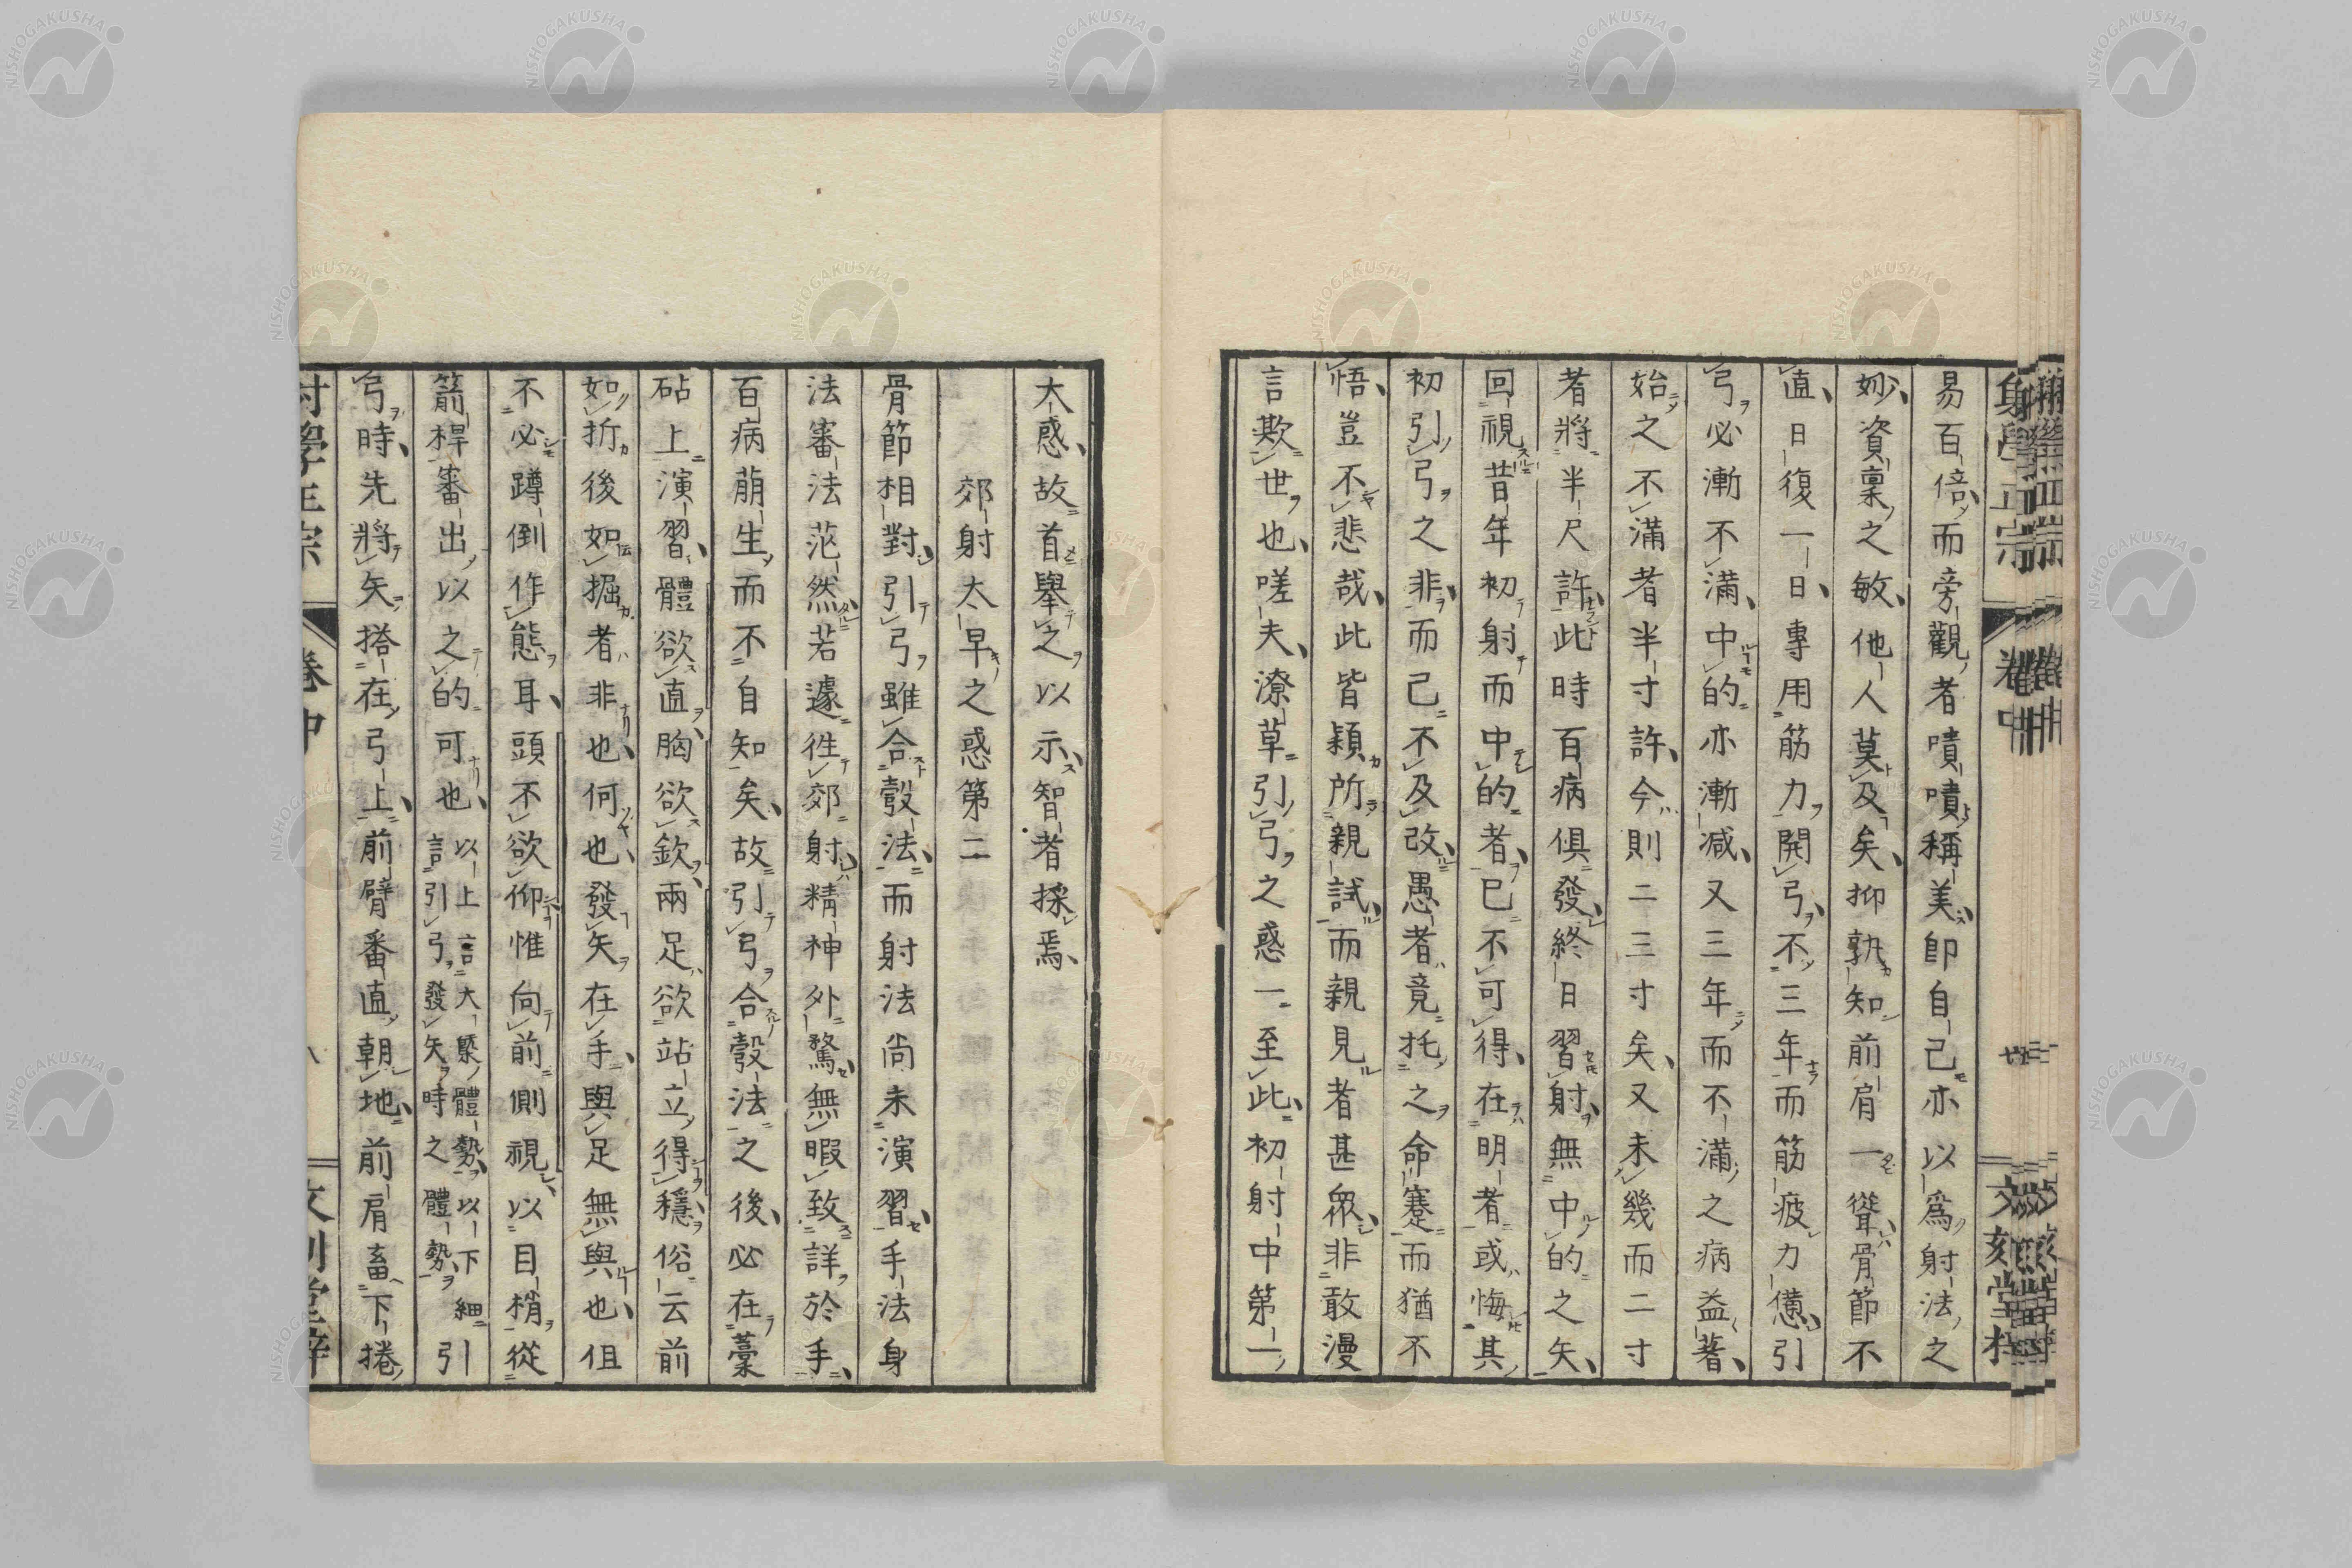 易百倍而旁觀者嘖嘖稱美即自己亦以為射法之
妙資稟之敏他人莫及矣抑孰知前肩一聳骨節不
直日復一日專用筋力開弓不三年而筋疲力憊引
弓必漸不滿中的亦漸減又三年而不滿之病益著
始之不滿者半寸許今則二三寸矣又未幾而二寸
者將半尺許此時百病俱發終日習射無中的之矢
回視昔年初射而中的者已不可得在明者或悔其
初引弓之非而己不及改愚者竟托之命蹇而猶不
悟豈不悲哉此皆穎所親試而親見者甚眾非敢漫
言欺世也嗟夫潦草引弓之惑一至此初射中第一
大惑故首舉之以示智者採焉
郊射太早之惑第二
骨節相對引弓雖合彀法而射法尚未演習手法身
法審法茫然若遽徃郊射精神外驁無暇致詳於手
百病萠生而不自知矣故引弓合彀法之後必在藁
砧上演習體欲直胸欲歛兩足欲站立得穩俗云前
如折後如掘者非也何也發矢在手與足無與也但
不必蹲倒作態耳頭不欲仰惟向前側視以目梢從
箭桿審出以之的可也以上言大槩體勢以下細
言引弓發矢時之體勢引
弓時先將矢搭在弓上前臂番直朝地前肩畜下捲
射學正宗
卷中
八
NISHOGAKUSHA